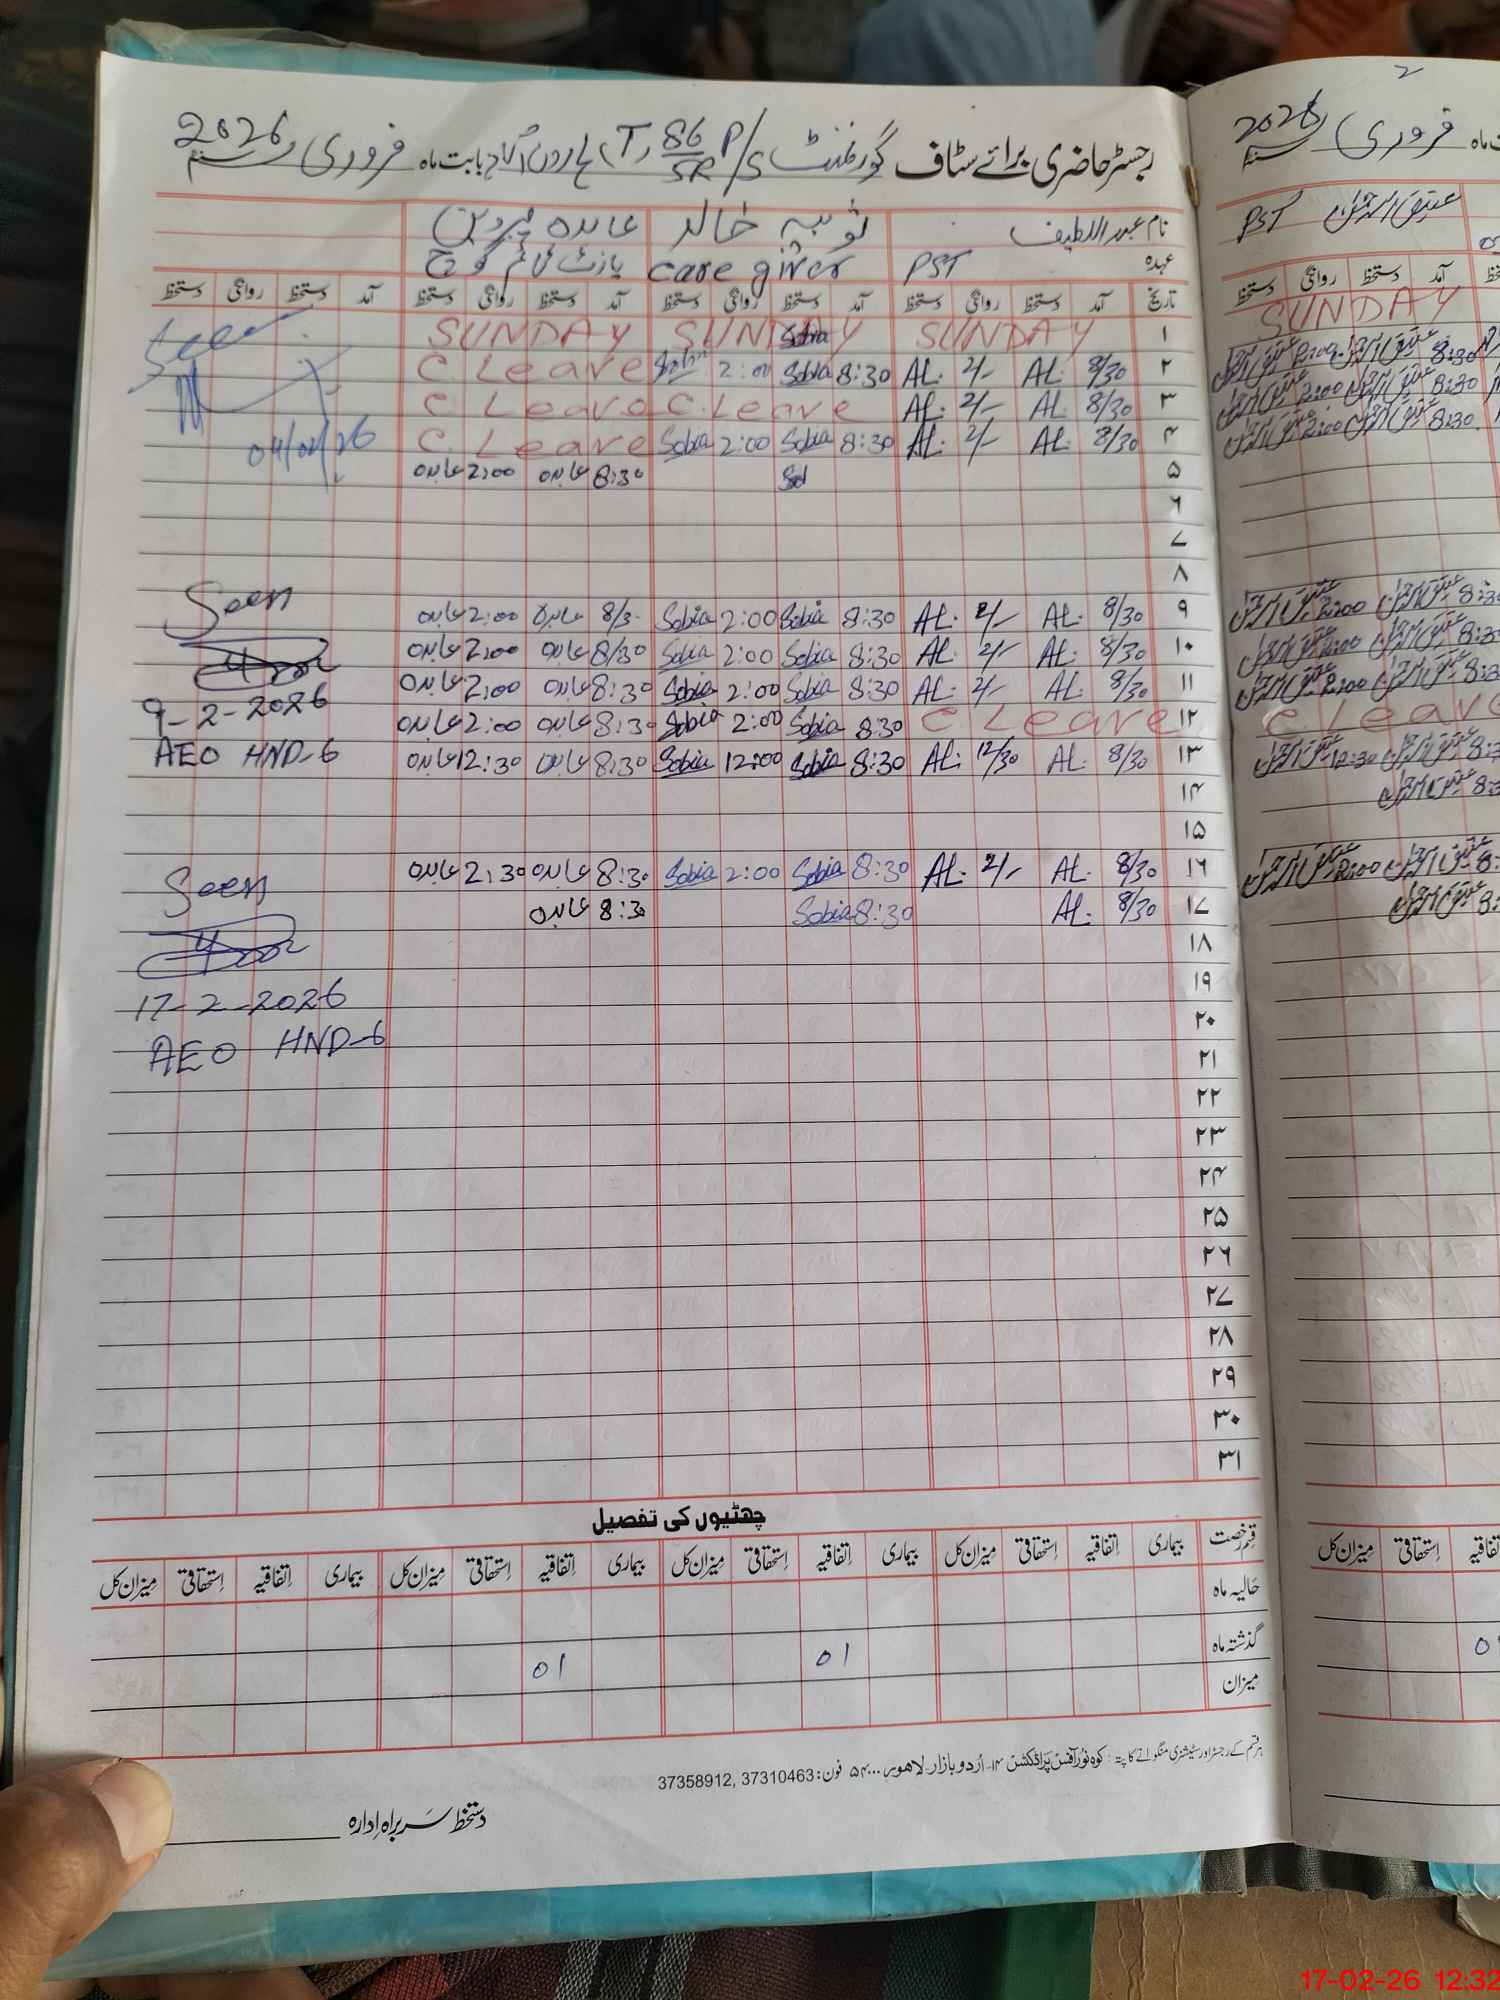 رجسٹر حاضری برائے سٹاف گورنمنٹ P/S 86/5R (T) ہارون آباد بابت ماہ فروری سنہ 2026
نام عبد اللطیف ثوبیہ خالد عابدہ پروین
عہدہ PST care giver
تاریخ آمد دستخط روانگی دستخط آمد دستخط روانگی دستخط آمد دستخط روانگی دستخط آمد دستخط روانگی دستخط
۱ SUNDAY SUNDAY Sobia SUNDAY Seen
۲ 8/30 AL. 2/- AL. 8:30 Sobia 2:00 Sobia C. Leave
۳ 8/30 AL. 2/- AL. C. Leave C. Leave
۴ 8/30 AL. 2/- AL. 8:30 Sobia 2:00 Sobia C. Leave 04/02/26
۵ Sd 8:30 عابدہ 2:00 عابدہ
۶
۷
۸
۹ 8/30 AL. 2/- AL. 8:30 Sobia 2:00 Sobia 8/30 عابدہ 2:00 عابدہ Seen
۱۰ 8/30 AL. 2/- AL. 8:30 Sobia 2:00 Sobia 8/30 عابدہ 2:00 عابدہ
۱۱ 8/30 AL. 2/- AL. 8:30 Sobia 2:00 Sobia 8:30 عابدہ 2:00 عابدہ 9-2-2026
۱۲ C Leave 8:30 Sobia 2:00 Sobia 8:30 عابدہ 2:00 عابدہ
۱۳ 8/30 AL. 12/30 AL. 8:30 Sobia 12:00 Sobia 8:30 عابدہ 12:30 عابدہ AEO HND-6
۱۴
۱۵
۱۶ 8/30 AL. 2/- AL. 8:30 Sobia 2:00 Sobia 8:30 عابدہ 2:30 عابدہ Seen
۱۷ 8/30 AL. 8:30 Sobia 8:30 عابدہ
۱۸
۱۹ 17-2-2026
۲۰ AEO HND-6
۲۱
۲۲
۲۳
۲۴
۲۵
۲۶
۲۷
۲۸
۲۹
۳۰
۳۱
چھٹیوں کی تفصیل
قسم رخصت بیماری اتفاقیہ استحقاقی میزان کل بیماری اتفاقیہ استحقاقی میزان کل بیماری اتفاقیہ استحقاقی میزان کل بیماری اتفاقیہ استحقاقی میزان کل
حالیہ ماہ
گذشتہ ماہ 01 01
میزان
ہر قسم کے رجسٹر اور سٹیشنری منگوانے کا پتہ: کوہ نور آفس پراڈکشن ۱۴- اردو بازار- لاہور ۵۴۰۰۰ فون: 37310463, 37358912
دستخط سربراہ ادارہ
2
ماہ فروری سنہ 2026
عتیق الرحمٰن PST
آمد دستخط روانگی دستخط
SUNDAY
8:30 عتیق الرحمٰن 2:00 عتیق الرحمٰن
8:30 عتیق الرحمٰن 2:00 عتیق الرحمٰن
8:30 عتیق الرحمٰن 2:00 عتیق الرحمٰن
عتیق الرحمٰن 2:00 عتیق الرحمٰن
عتیق الرحمٰن 2:00 عتیق الرحمٰن
عتیق الرحمٰن 2:00 عتیق الرحمٰن
C Leave
عتیق الرحمٰن 12:30 عتیق الرحمٰن
عتیق الرحمٰن
عتیق الرحمٰن 2:00 عتیق الرحمٰن
عتیق الرحمٰن
اتفاقیہ استحقاقی میزان کل
17-02-26 12:32